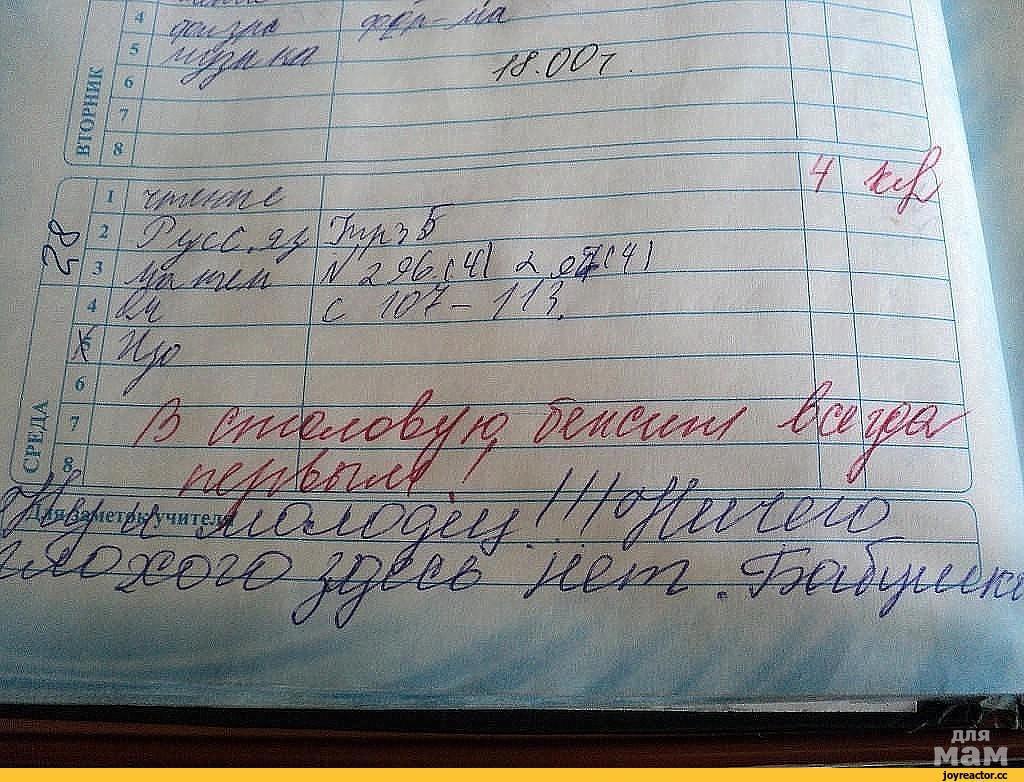 4 физра фор-ма
5 музыка
6 18.00г.
7
8
ВТОРНИК
28
1 чтение 4
2 Русс.яз Упр 5
3 матем N 296.(4) 297(4)
4 с 107-113.
5 Изо
6
7 В столовую бежит всегда
8 первым!
СРЕДА
Для заметок учителя
Ну и молодец!!! Ничего
плохого здесь нет. Бабушка
для
мам
joyreactor.cc